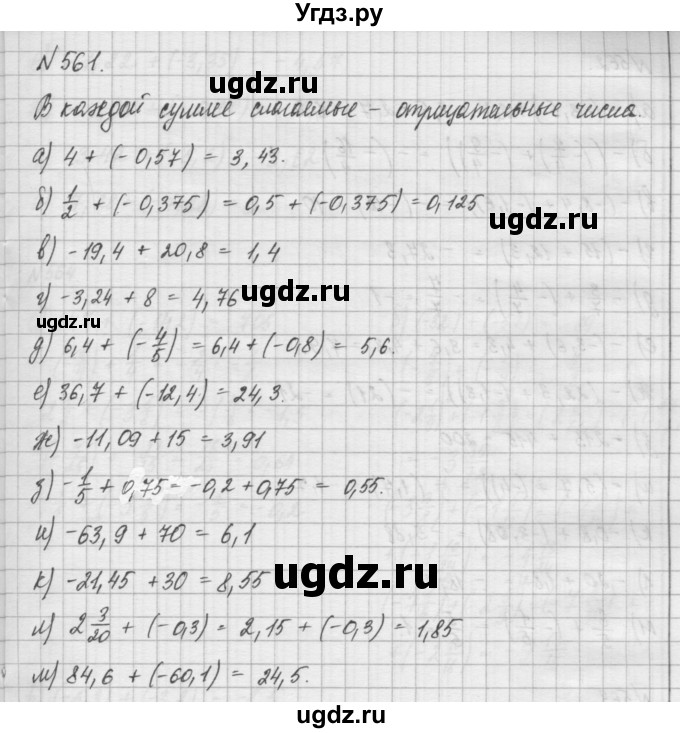 Угдз.ру
№561.
ugdz.ru
В каждой сумме слагаемые - отрицательные числа.
а) 4 + (-0,57) = 3,43.
б) 1/2 + (-0,375) = 0,5 + (-0,375) = 0,125
ugdz.ru
в) -19,4 + 20,8 = 1,4
г) -3,24 + 8 = 4,76
ugdz.ru
ugdz.ru
д) 6,4 + (-4/5) = 6,4 + (-0,8) = 5,6.
е) 36,7 + (-12,4) = 24,3.
ж) -11,09 + 15 = 3,91
з) -1/5 + 0,75 = -0,2 + 0,75 = 0,55.
и) -63,9 + 70 = 6,1
к) -21,45 + 30 = 8,55
ugdz.ru
л) 2 3/20 + (-0,3) = 2,15 + (-0,3) = 1,85
м) 84,6 + (-60,1) = 24,5.
ugdz.ru